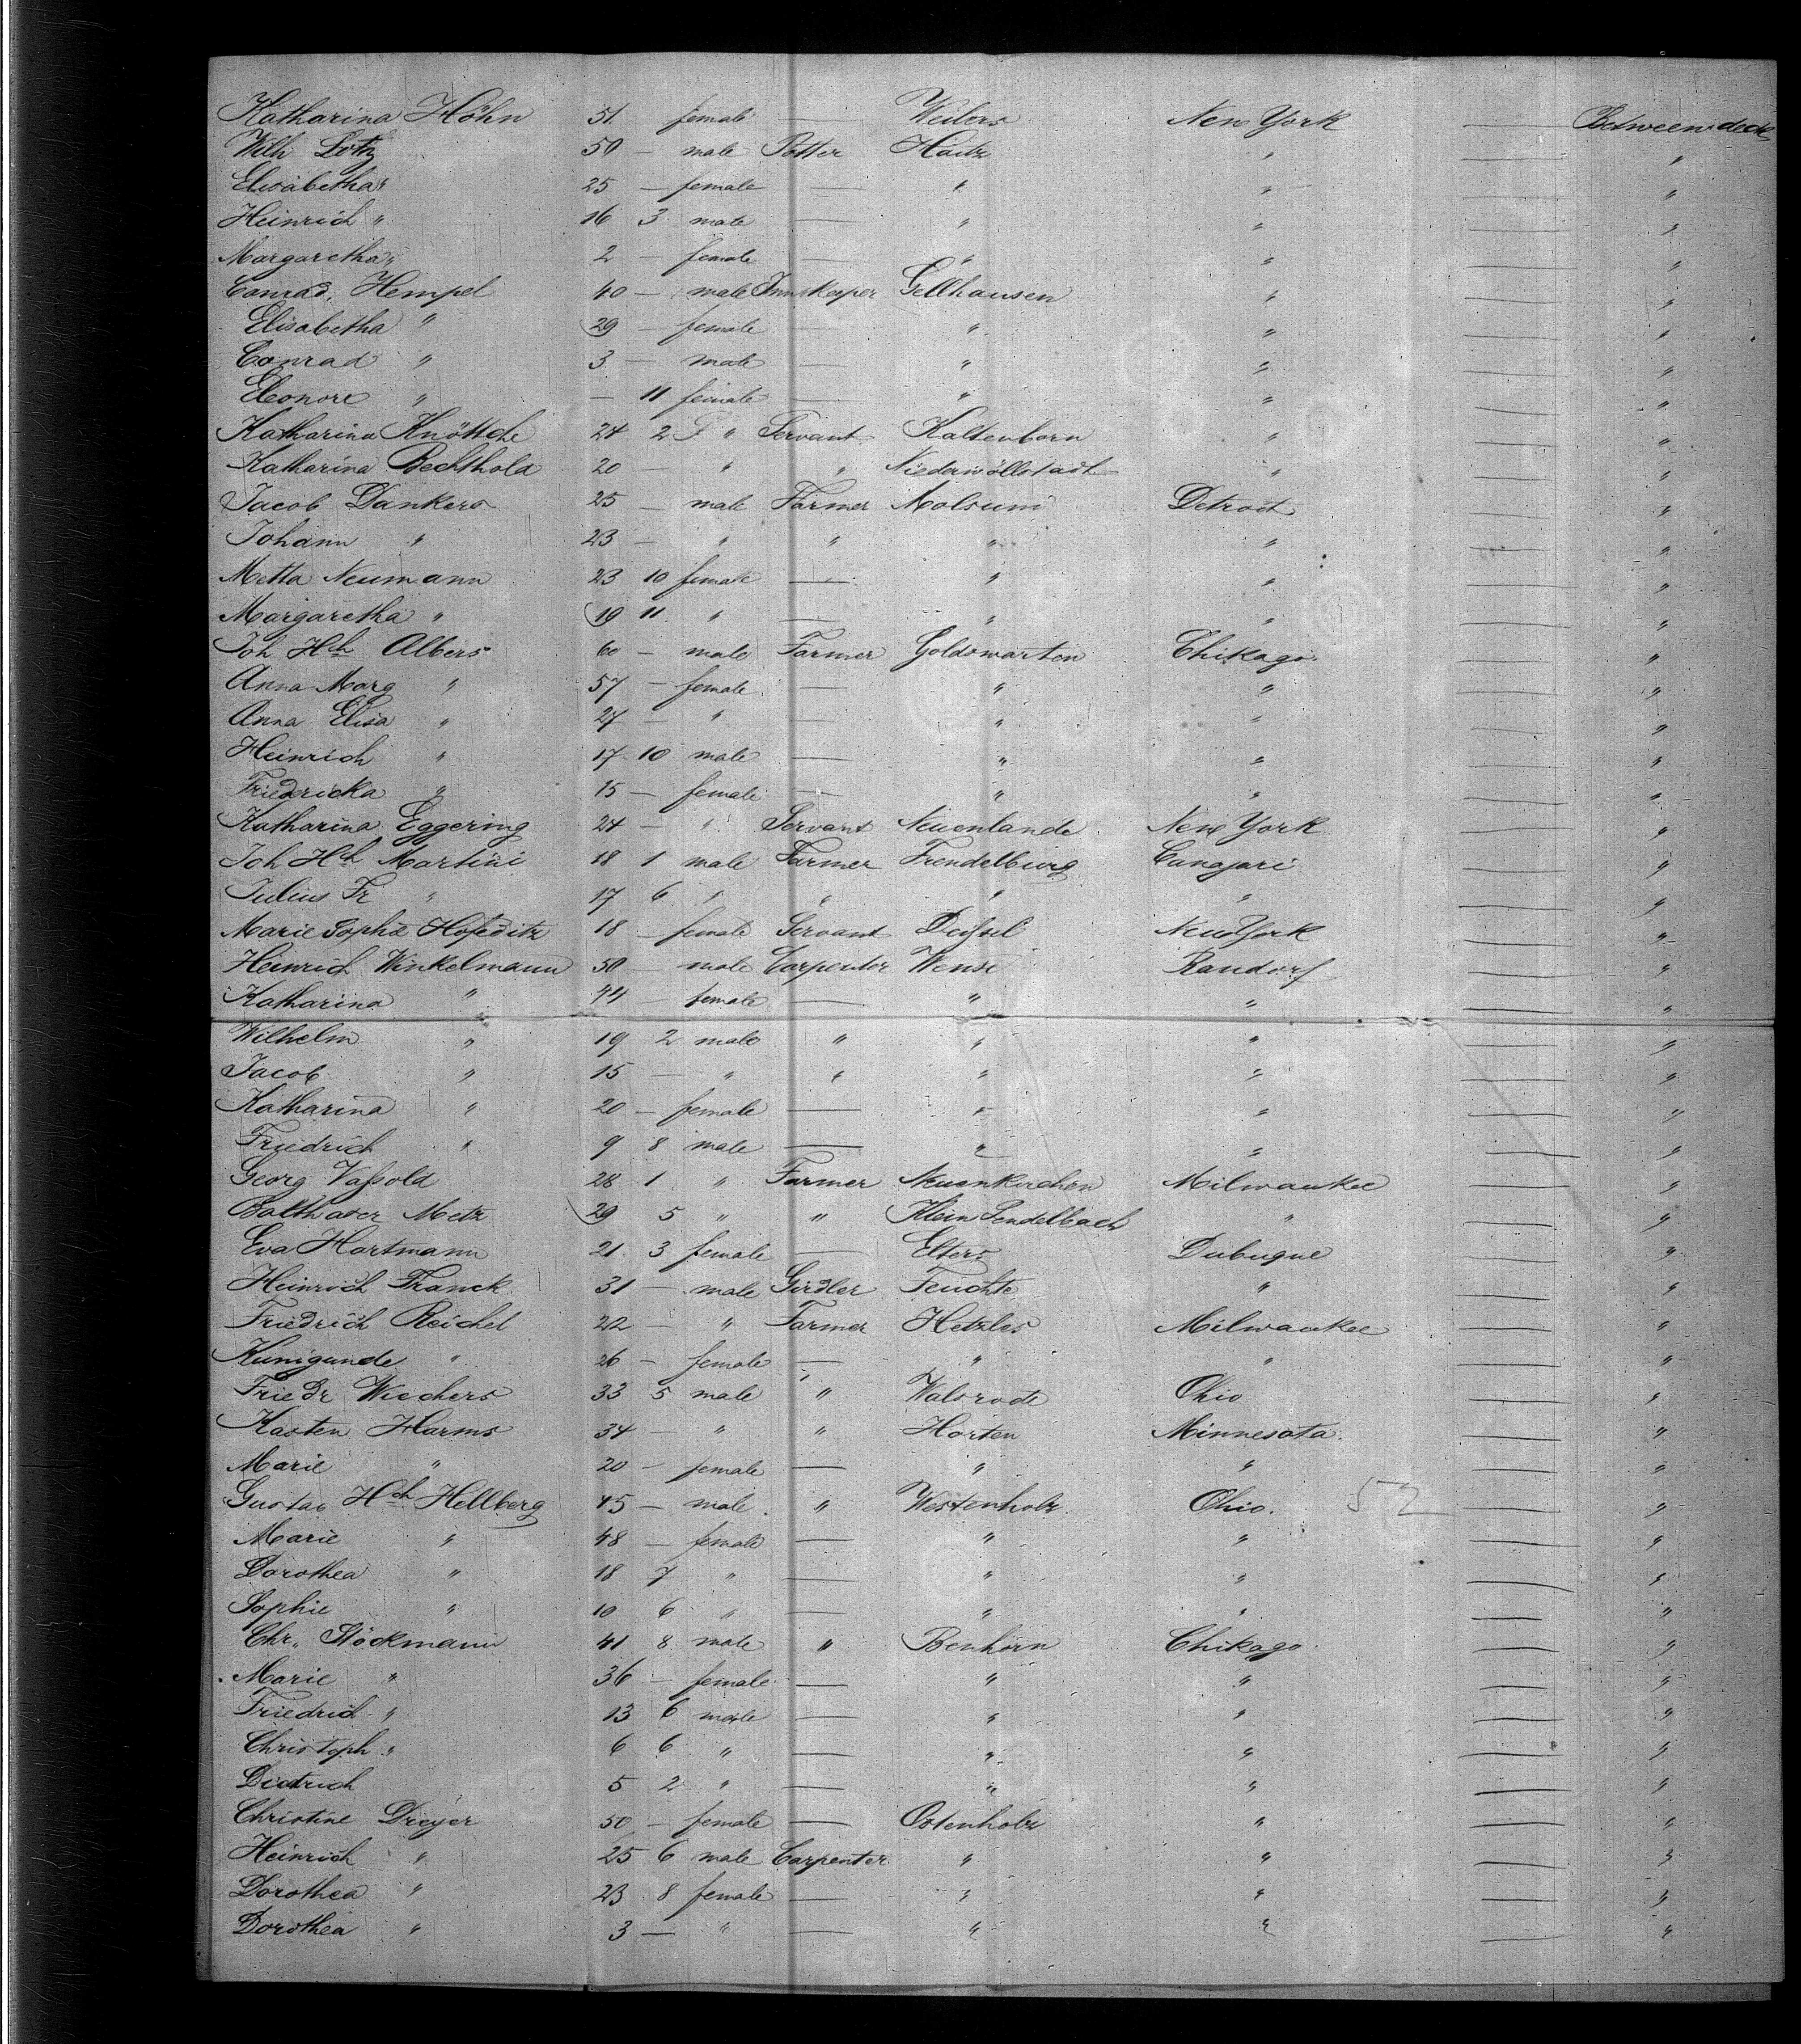 Katharina Höhn 51 female — Weilers New York — Between deck
Wilh Lotz 50 — male Potter Haitz " — "
Elisabetha " 25 — female — " " — "
Heinrich " 16 3 male — " " — "
Margaretha " 2 — female — " " — "
Conrad Hempel 40 — male Innkeeper Gellhausen " — "
Elisabetha " 29 — female — " " — "
Conrad " 3 — male — " " — "
Eleonore " — 11 female — " " — "
Katharina Knöttche 24 2 " Servant Kaltenborn " — "
Katharina Bechthold 20 — " " Niederwöllstadt " — "
Jacob Dankers 25 — male Farmer Molsum Detroit — "
Johann " 23 — " " " " — "
Metta Neumann 23 10 female — " " — "
Margaretha " 19 11 " — " " — "
Joh Hch Albers 60 — male Farmer Goldswarten Chikago — "
Anna Marg " 57 — female — " " — "
Anna Elisa " 27 — " — " " — "
Heinrich " 17 10 male — " " — "
Friedricka " 15 — female — " " — "
Katharina Eggering 24 — " Servant Neuenlande New York — "
Joh Hch Martini 18 1 male Farmer Trendelburg Canajari — "
Julius Fr " 17 6 " " " " — "
Marie Sophie Hofeditz 18 — female Servant Deißel New York — "
Heinrich Winkelmann 50 — male Carpenter Wense Randorf — "
Katharina " 44 — female — " " — "
Wilhelm " 19 2 male " " " — "
Jacob " 15 — " " " " — "
Katharina " 20 — female — " " — "
Friedrich " 9 8 male — " " — "
Georg Vaßold 28 1 " Farmer Neuenkirchen Milwaukee — "
Balthaser Metz 29 5 " " Klein Sendelbach " — "
Eva Hartmann 21 3 female — Elters Dubuque — "
Heinrich Franck 31 — male Girdler Feuchte " — "
Friedrich Reichel 22 — " Farmer Hetzles Milwaukee — "
Kunigunde " 26 — female — " " — "
Friedr Wiechers 33 5 male " Walsrode Ohio — "
Kasten Harms 34 — " " Horten Minnesota — "
Marie " 20 — female — " " — "
Gustav Hch Hellberg 45 — male " Westenholz Ohio. 52 — "
Marie " 48 — female — " " — "
Dorothea " 18 7 " — " " — "
Sophie " 10 6 " — " " — "
Chr. Stöckmann 41 8 male " Benhörn Chikago — "
Marie " 36 — female — " " — "
Friedrich " 13 6 male — " " — "
Christoph " 6 6 " — " " — "
Dietrich 5 2 " — " " — "
Christine Dreyer 50 — female — Ostenholz " — "
Heinrich " 25 6 male Carpenter " " — "
Dorothea " 23 8 female — " " — "
Dorothea " 3 — " — " " — "